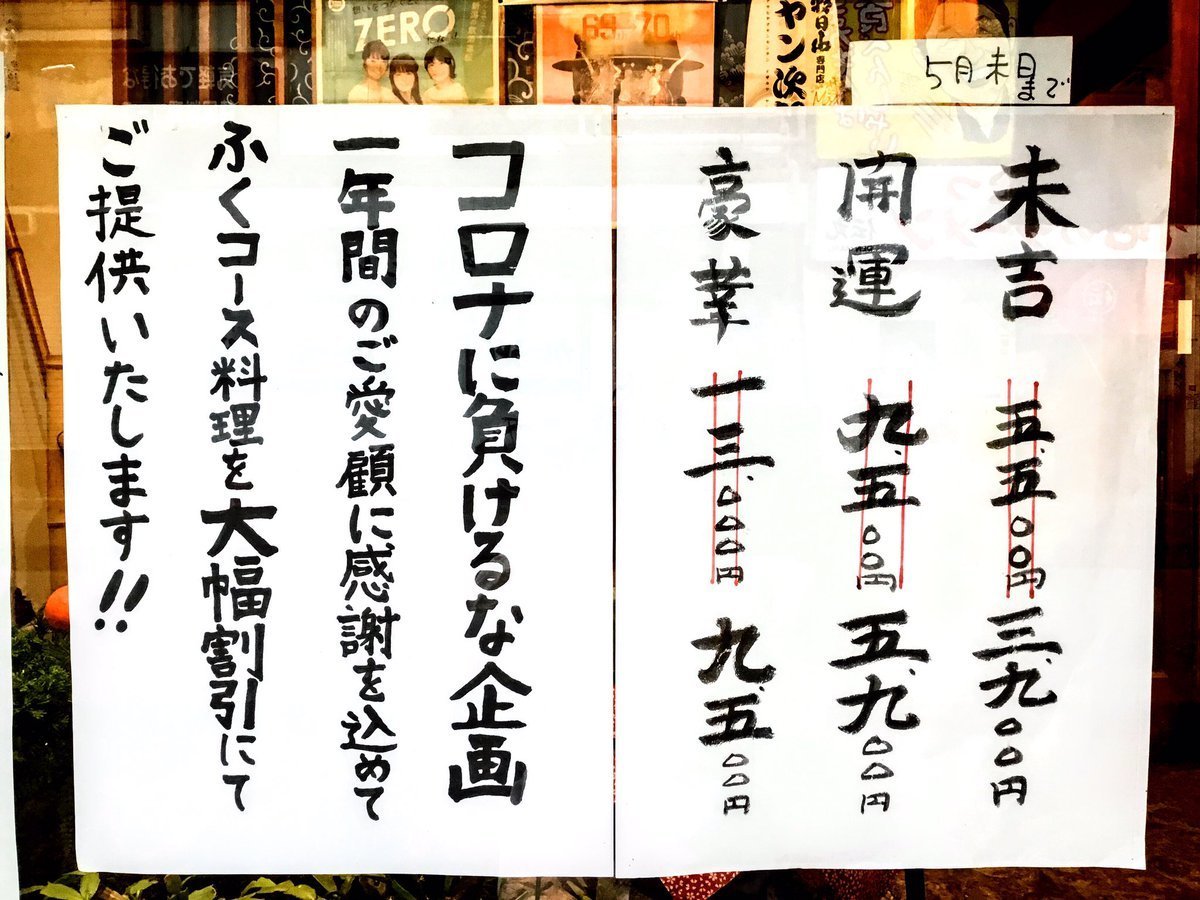 5月末日まで
未吉 五、五〇〇円 三、九〇〇円
開運 九、五〇〇円 五、九〇〇円
豪華 一三、〇〇〇円 九、五〇〇円
コロナに負けるな企画
一年間のご愛顧に感謝を込めて
ふくコース料理を大幅割引にて
ご提供いたします!!
ZERO
69
70
専門店